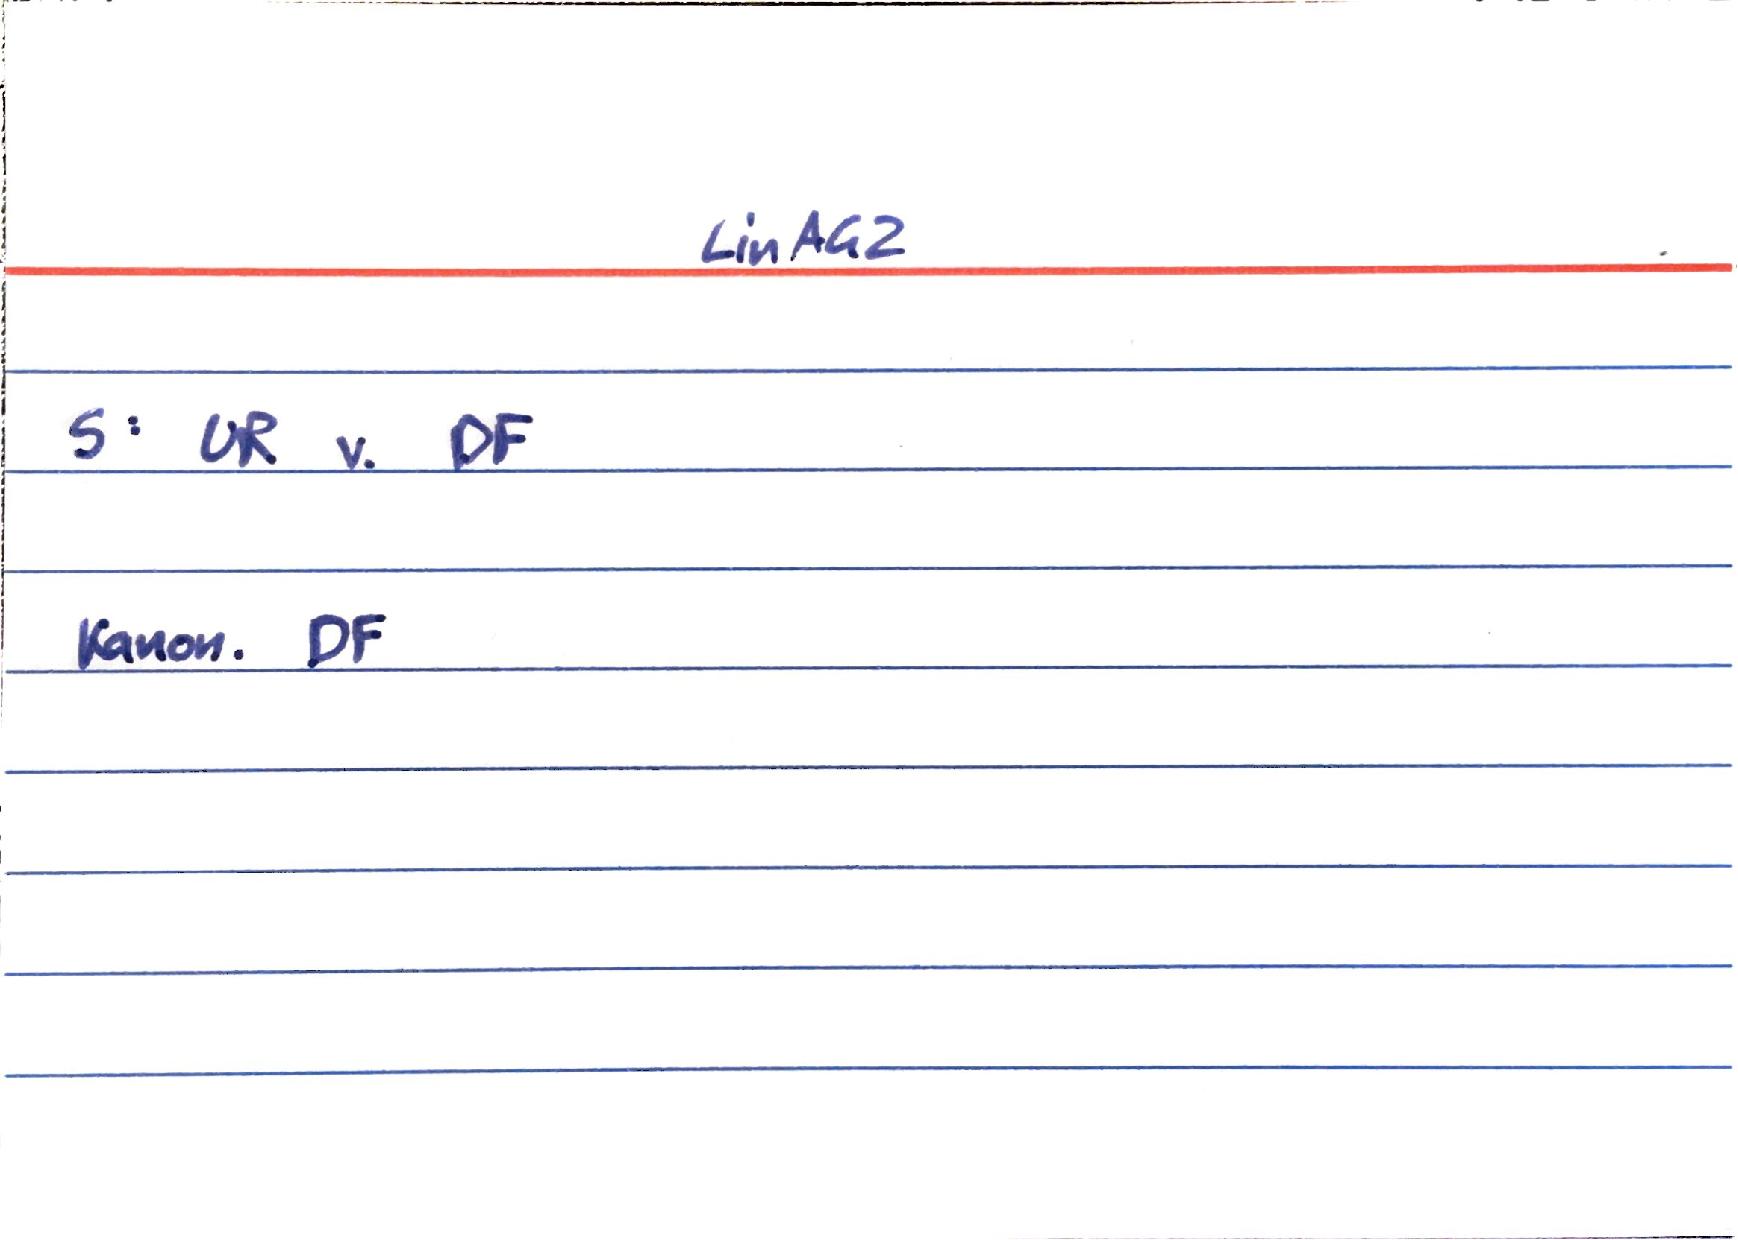 LinAG2
S: UR v. DF
Kanon. DF